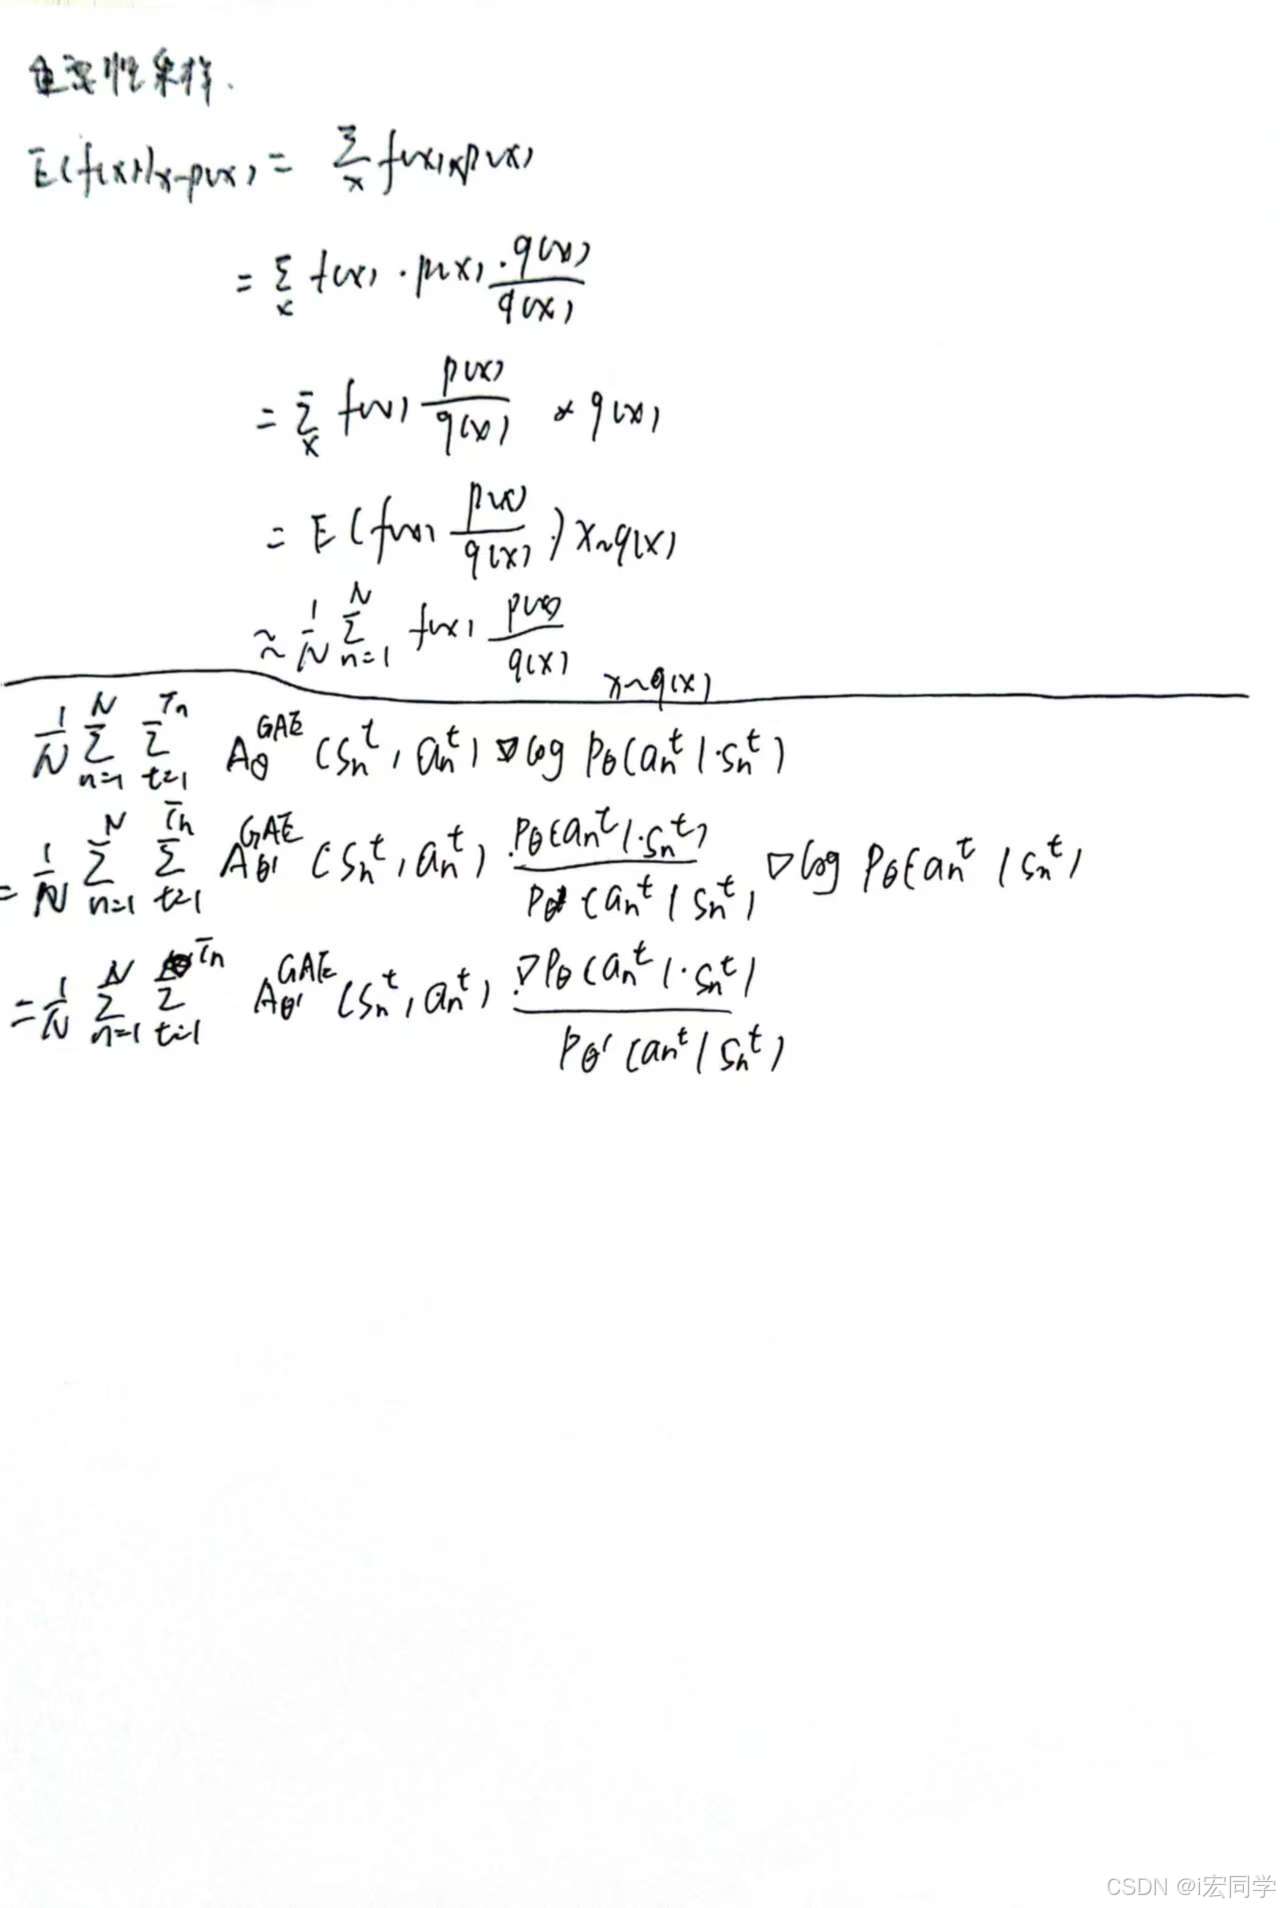 重要性采样.
E(f(x))x~p(x) = Σ_x f(x)×p(x)
= Σ_x f(x) · p(x) · q(x)/q(x)
= Σ_x f(x) p(x)/q(x) * q(x)
= E(f(x) p(x)/q(x)) x~q(x)
≈ 1/N Σ_{n=1}^{N} f(x) p(x)/q(x) x~q(x)
1/N Σ_{n=1}^{N} Σ_{t=1}^{T_n} A_θ^{GAE}(s_n^t, a_n^t) ∇log P_θ(a_n^t | s_n^t)
= 1/N Σ_{n=1}^{N} Σ_{t=1}^{T_n} A_{θ'}^{GAE}(s_n^t, a_n^t) P_θ(a_n^t | s_n^t)/P_{θ'}(a_n^t | s_n^t) ∇log P_θ(a_n^t | s_n^t)
= 1/N Σ_{n=1}^{N} Σ_{t=1}^{T_n} A_{θ'}^{GAE}(s_n^t, a_n^t) ∇P_θ(a_n^t | s_n^t)/P_{θ'}(a_n^t | s_n^t)
CSDN @i宏同学